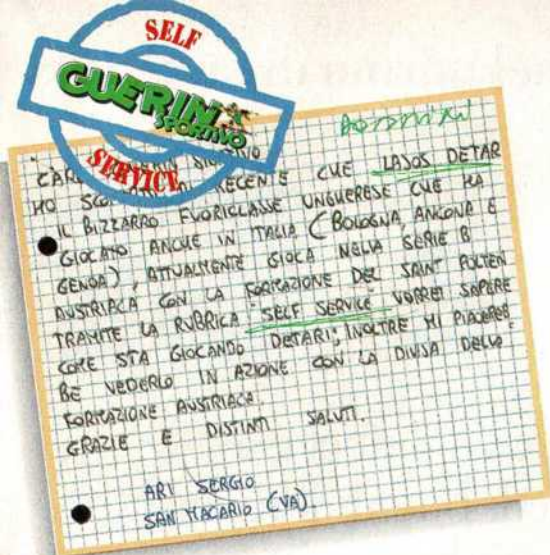 SELF
GUERIN
SPORTIVO
SERVICE
SPORTIVO
HO RECENTE CHE LASOS DETAR
IL BIZZARRO FUORICLASSE UNGHERESE CHE HA
GIOCATO ANCHE IN ITALIA (BOLOGNA, ANCONA E
GENOA), ATTUALMENTE GIOCA NELLA SERIE B
AUSTRIACA CON LA FORMAZIONE DEL SAINT POLTEN
TRAMITE LA RUBRICA "SELF SERVICE" VORREI SAPERE
COME STA GIOCANDO DETARI; INOLTRE MI PIACEREB-
BE VEDERLO IN AZIONE CON LA DIVISA DELLA
FORMAZIONE AUSTRIACA.
GRAZIE E DISTINTI SALUTI.
ARI SERGIO
SAN MACARIO (VA)